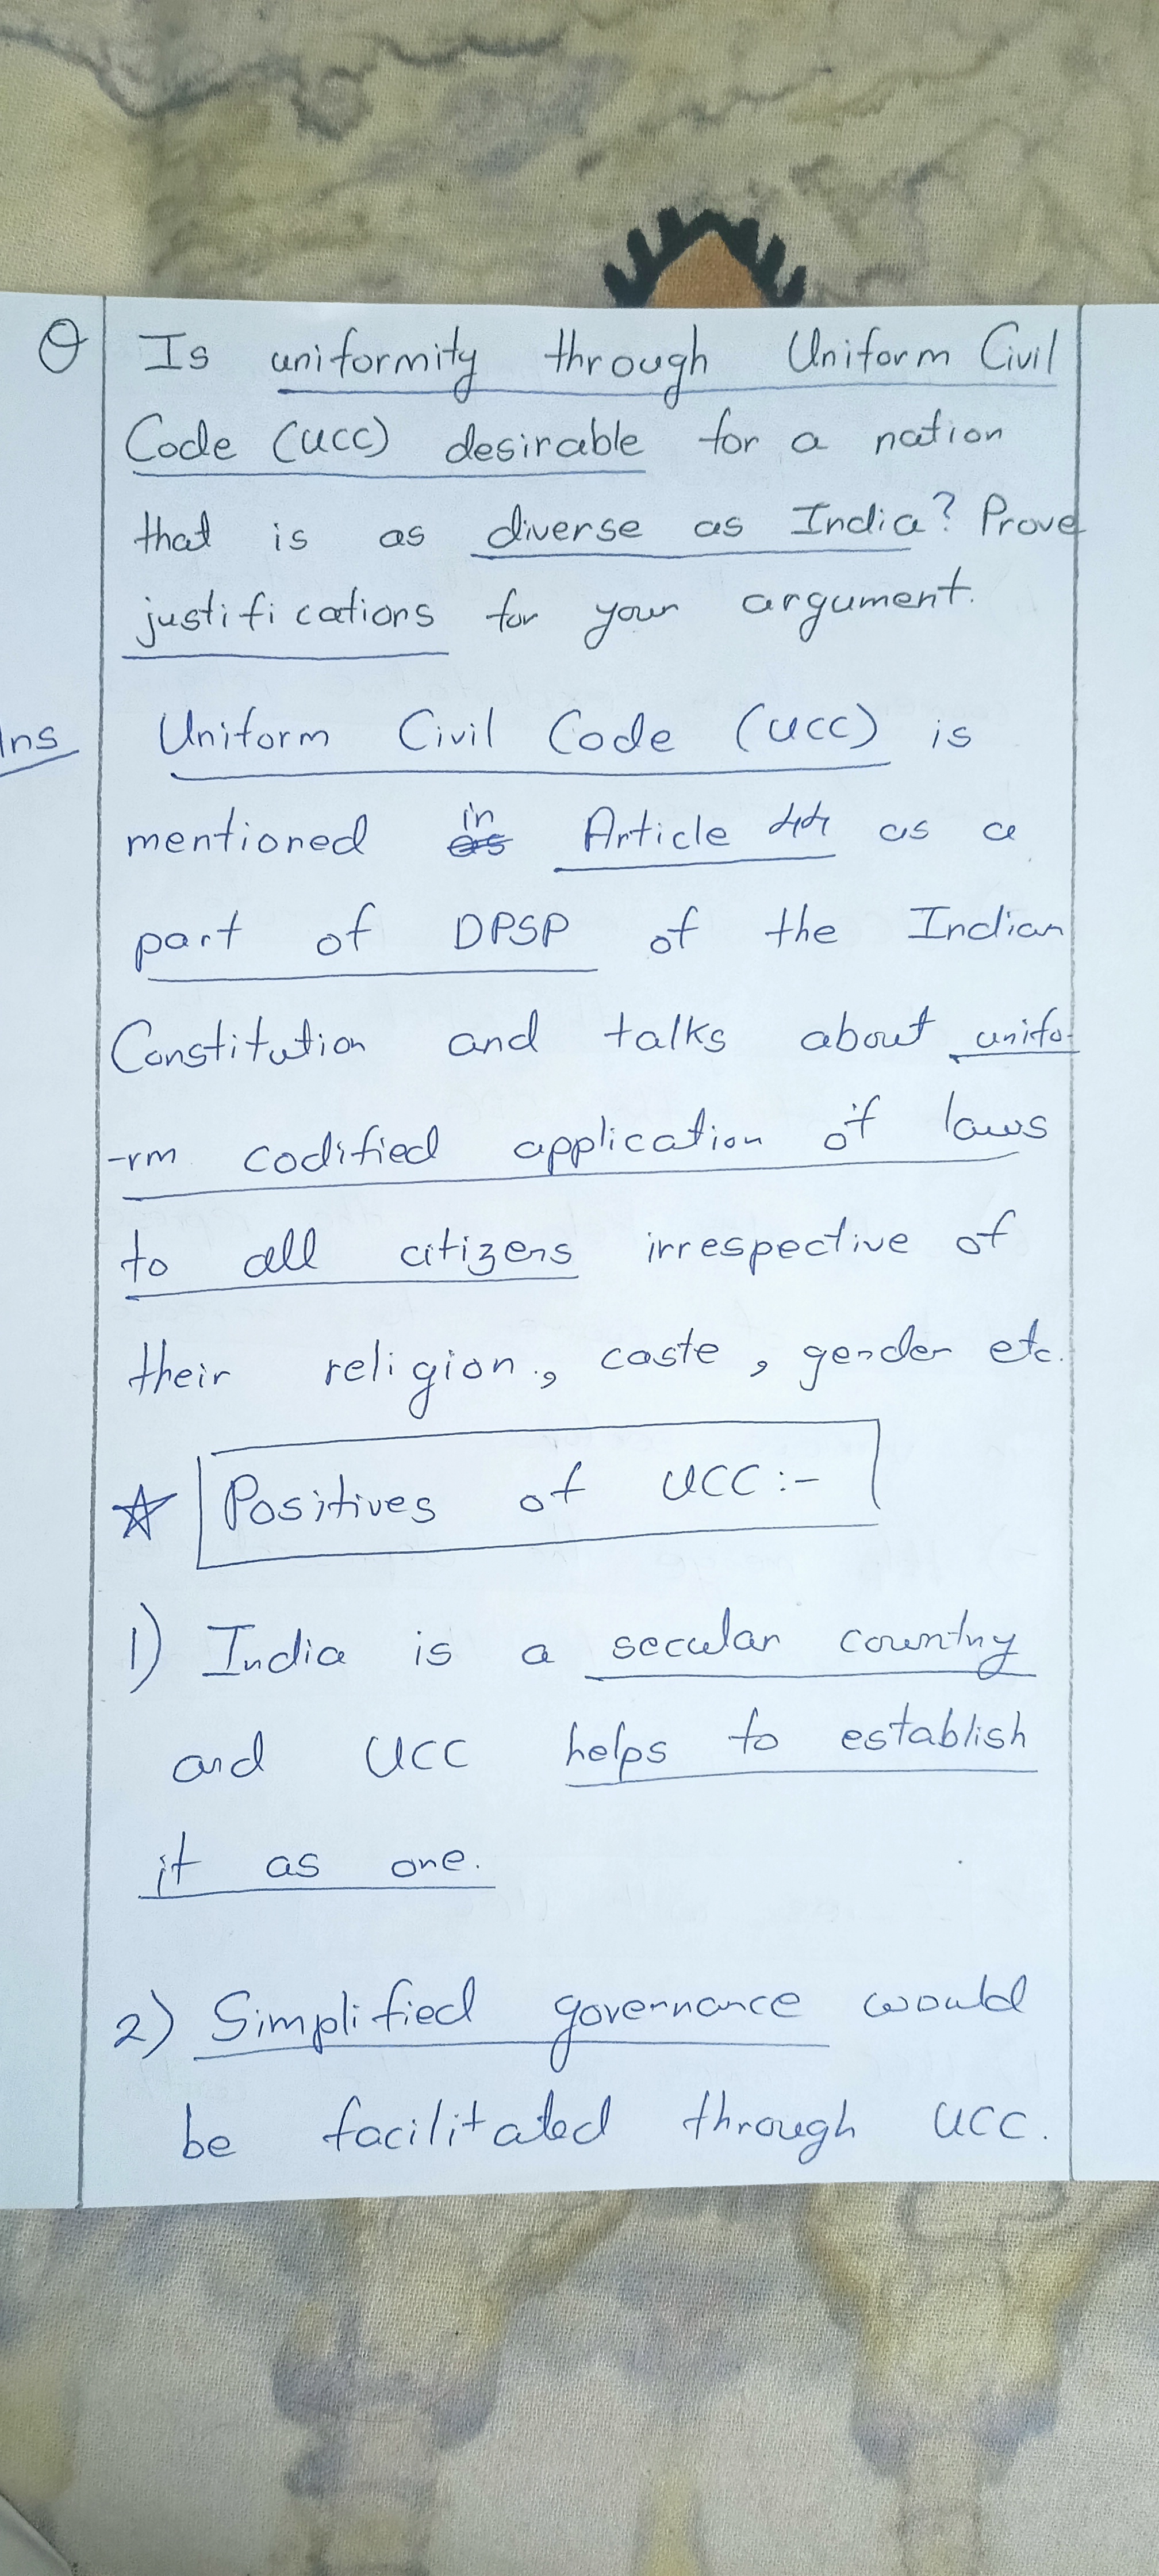 Q Is uniformity through Uniform Civil
Code (UCC) desirable for a nation
that is as diverse as India? Prove
justifications for your argument.
Ans Uniform Civil Code (UCC) is
mentioned in Article 44 as a
part of DPSP of the Indian
Constitution and talks about unifo-
-rm codified application of laws
to all citizens irrespective of
their religion, caste, gender etc.
☆ Positives of UCC:-
1) India is a secular country
and UCC helps to establish
it as one.
2) Simplified governance would
be facilitated through UCC.